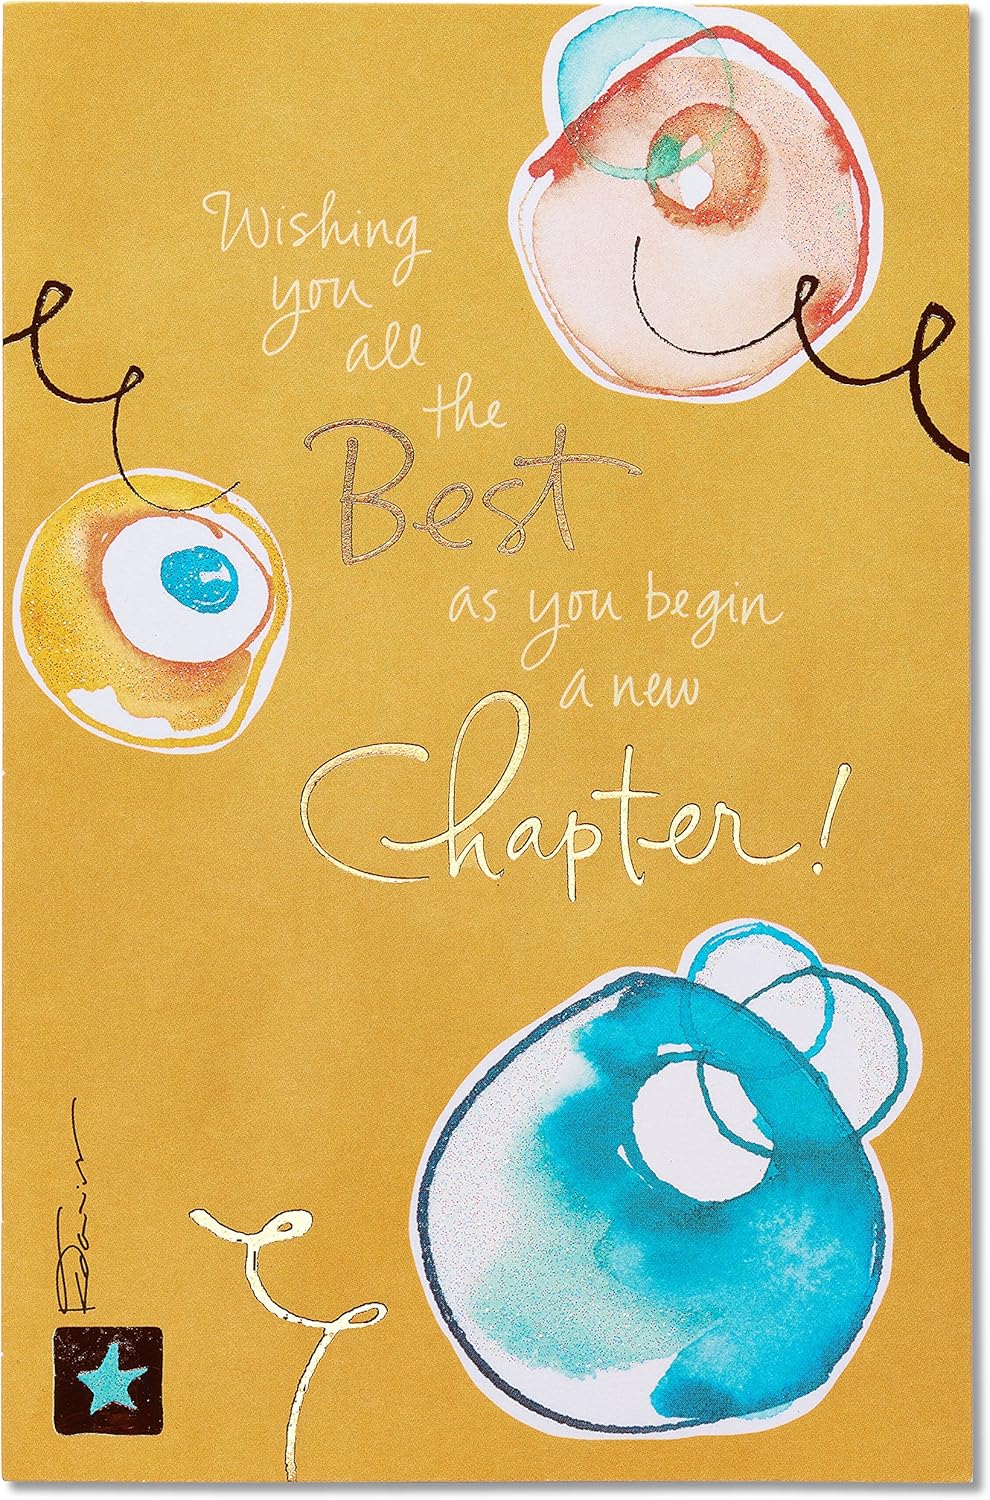 Wishing
you
all
the
Best
as you begin
a new
Chapter!